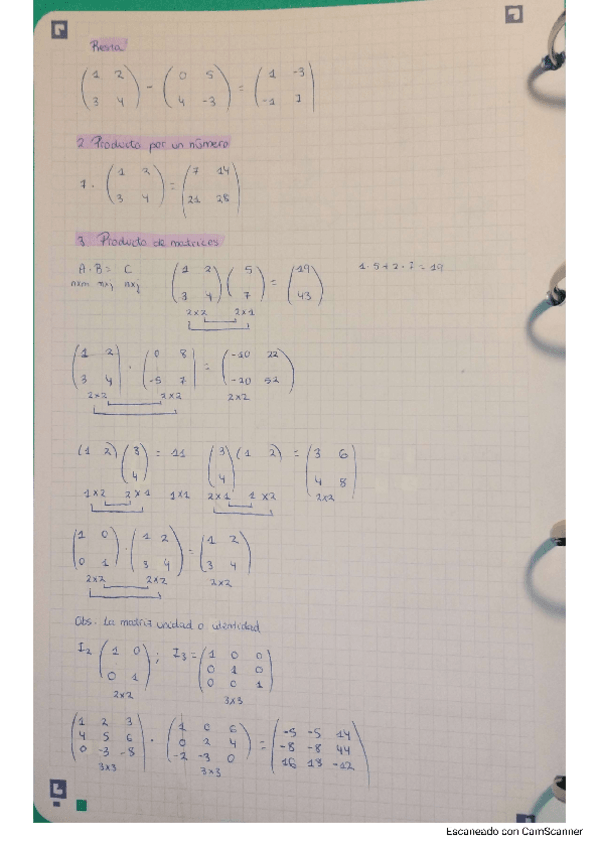 Resta
(1 2 / 3 4) - (0 5 / 4 -3) = (1 -3 / -1 7)
2 Producto por un número
7 · (1 2 / 3 4) = (7 14 / 21 28)
3 Producto de matrices
A·B = C (1 2 / 3 4)(5 / 7) = (19 / 43) 1·5+2·7=19
nxm mxj nxj
2x2 2x1
(1 2 / 3 4) · (0 8 / -5 7) = (-10 22 / -20 52)
2x2 2x2 2x2
(1 2)(3 / 4) = 11 (3 / 4)(1 2) = (3 6 / 4 8)
1x2 2x1 1x1 2x1 1x2 2x2
(1 0 / 0 1) · (1 2 / 3 4) = (1 2 / 3 4)
2x2 2x2 2x2
Obs. La matriz unidad o identidad
I2 (1 0 / 0 1); I3 = (1 0 0 / 0 1 0 / 0 0 1)
2x2 3x3
(1 2 3 / 4 5 6 / 0 -3 -8) · (1 0 6 / 0 2 4 / -2 -3 0) = (-5 -5 14 / -8 -8 44 / 16 18 -12)
3x3 3x3
Escaneado con CamScanner